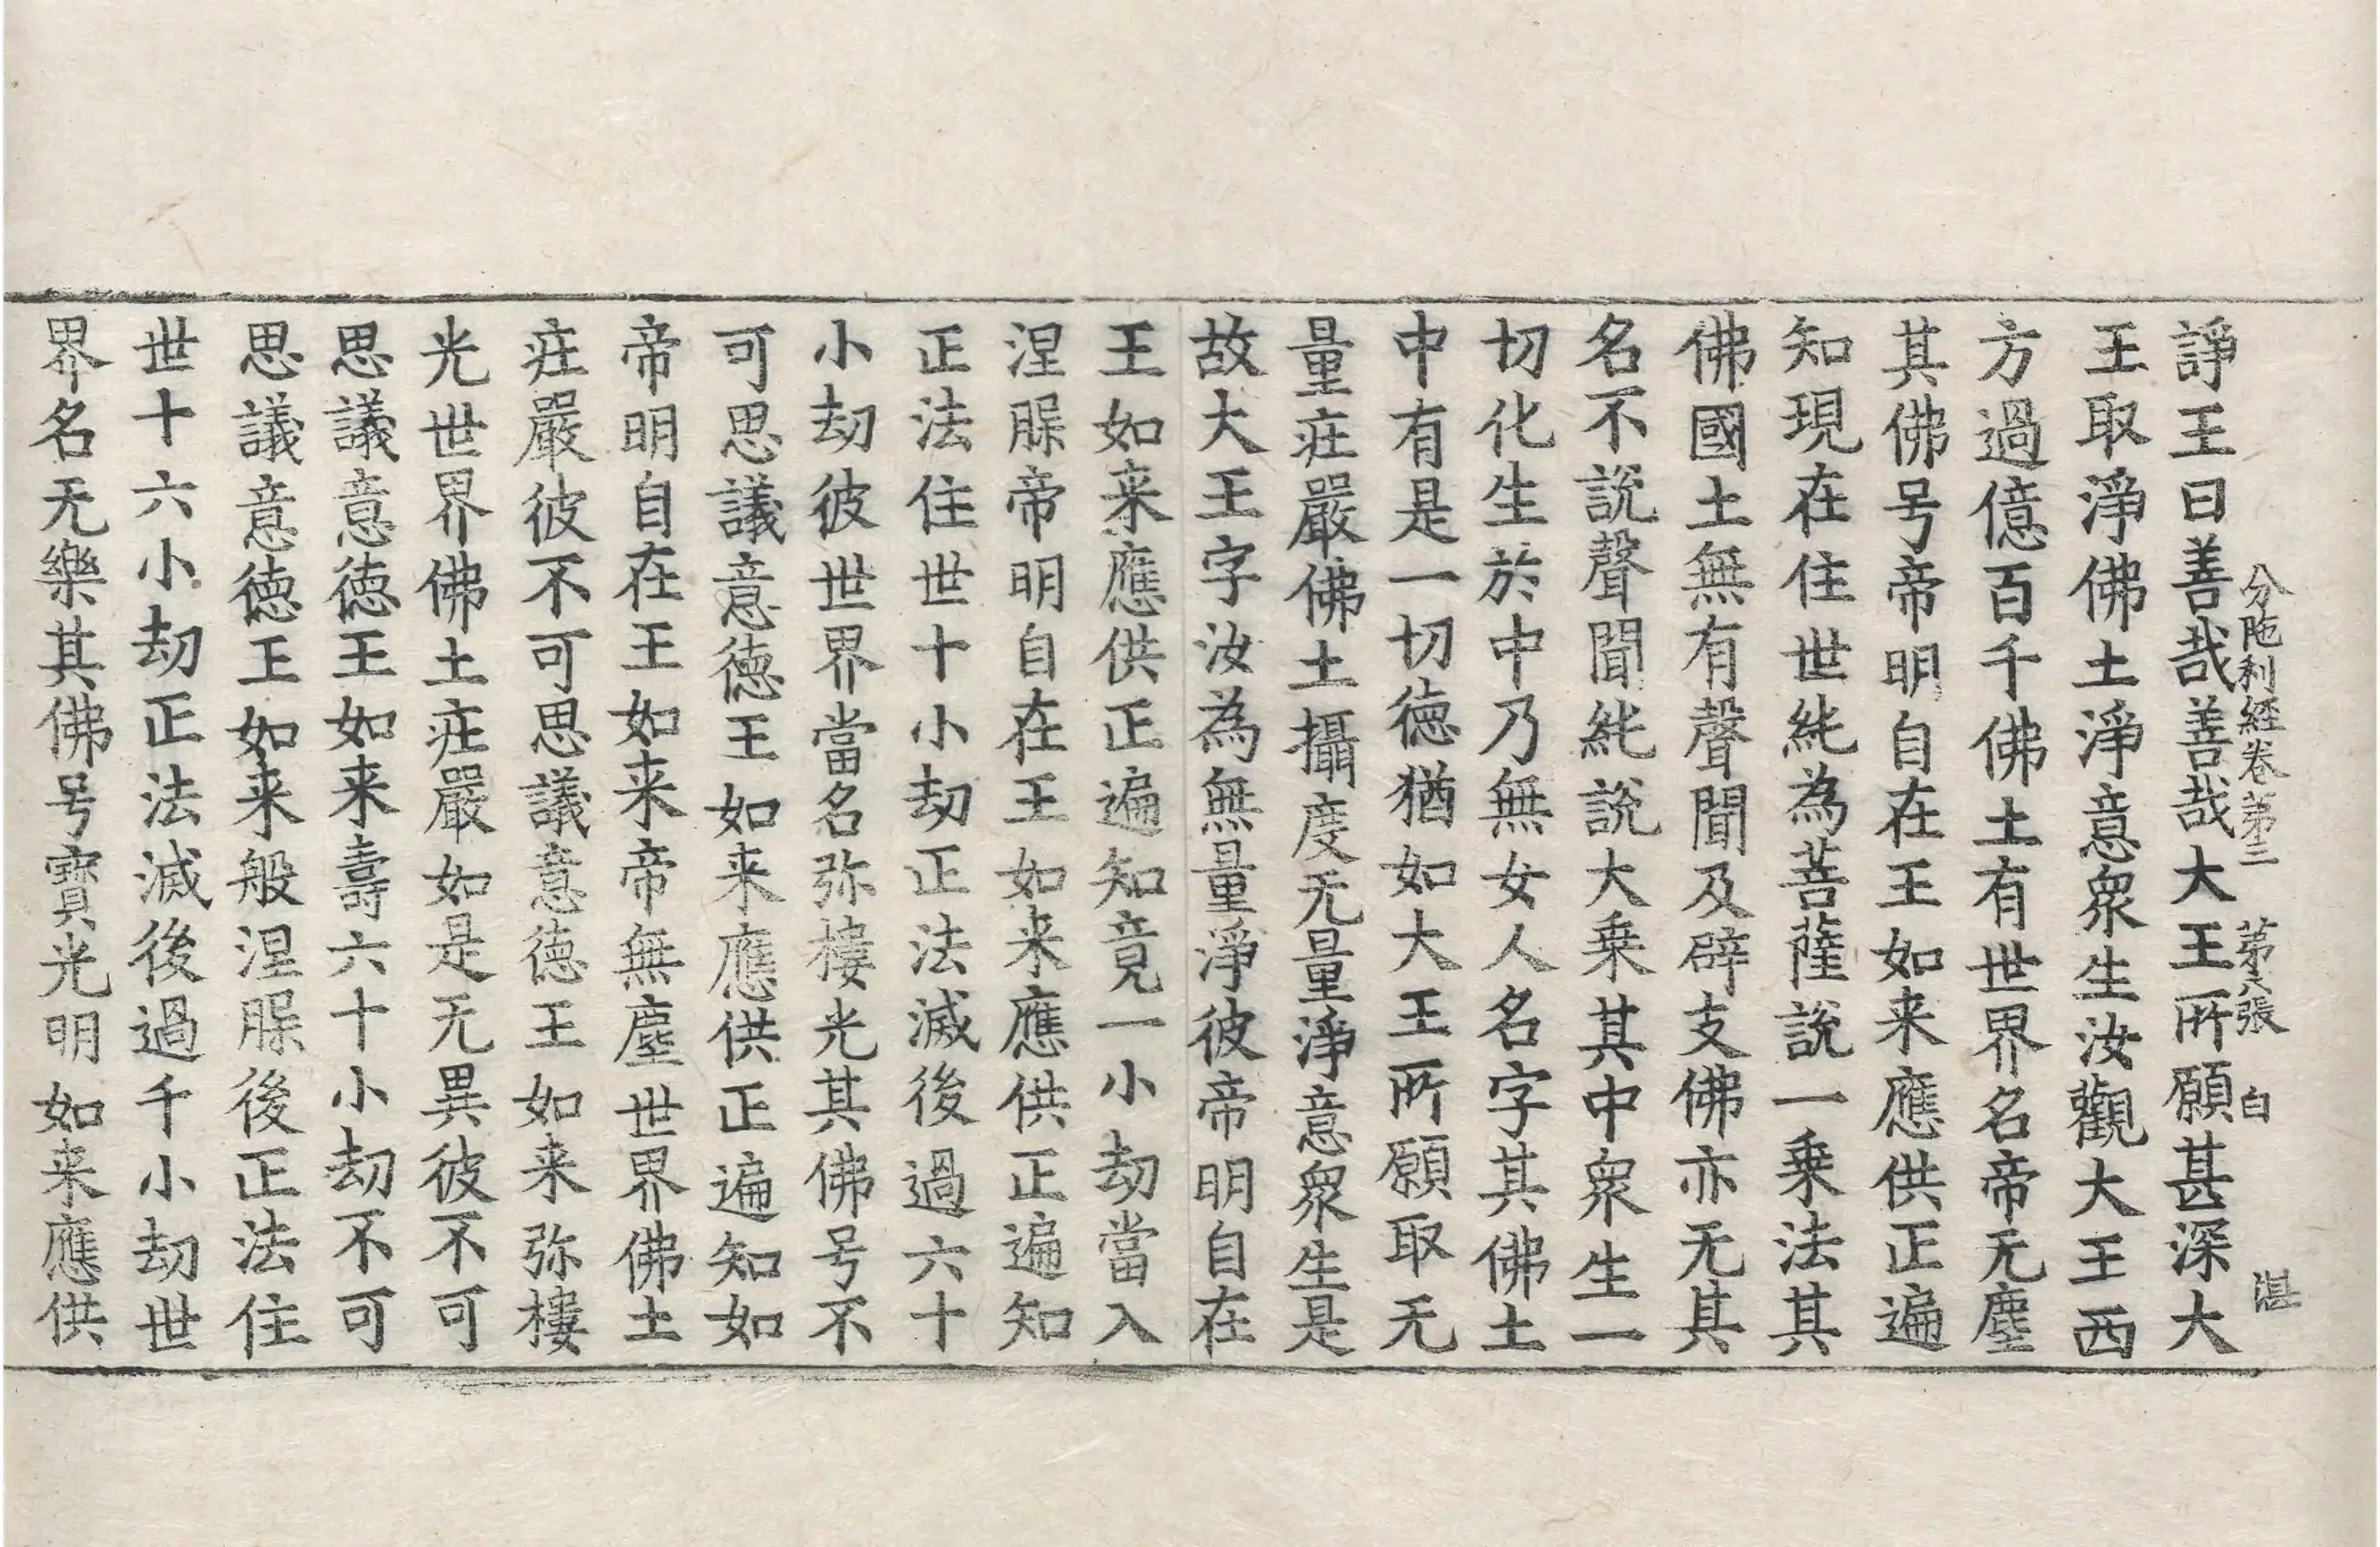 分陁利經卷第三 第六張 白 湛
諍王曰善哉善哉大王所願甚深大
王取淨佛土淨意衆生汝觀大王西
方過億百千佛土有世界名帝无塵
其佛号帝明自在王如来應供正遍
知現在住世純為菩薩說一乗法其
佛國土無有聲聞及辟支佛亦无其
名不說聲聞純說大乗其中衆生一
切化生於中乃無女人名字其佛土
中有是一切徳猶如大王所願取无
量莊嚴佛土攝度无量淨意衆生是
故大王字汝為無量淨彼帝明自在
王如来應供正遍知竟一小劫當入
涅槃帝明自在王如来應供正遍知
正法住世十小劫正法滅後過六十
小劫彼世界當名弥樓光其佛号不
可思議意徳王如来應供正遍知如
帝明自在王如来帝無塵世界佛土
莊嚴彼不可思議意徳王如来弥樓
光世界佛土莊嚴如是无異彼不可
思議意徳王如来壽六十小劫不可
思議意徳王如来般涅槃後正法住
世十六小劫正法滅後過千小劫世
界名无樂其佛号寶光明如来應供